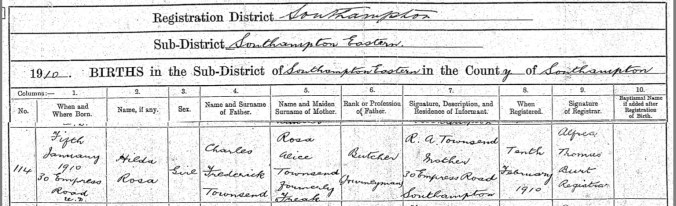 Registration District Southampton
Sub-District Southampton Eastern.
1910. BIRTHS in the Sub-District of Southampton Eastern in the County of Southampton
Columns:— 1. 2. 3. 4. 5. 6. 7. 8. 9. 10.
No. When and Where Born. Name, if any. Sex. Name and Surname of Father. Name and Maiden Surname of Mother. Rank or Profession of Father. Signature, Description, and Residence of Informant. When Registered. Signature of Registrar. Baptismal Name if added after Registration of Birth.
114 Fifth January 1910 30 Empress Road Hilda Rosa Girl Charles Frederick Townsend Rosa Alice Townsend formerly Butcher Journeyman R. A. Townsend Mother 30 Empress Road Southampton Tenth February 1910 Alfred Thomas Burt Registrar